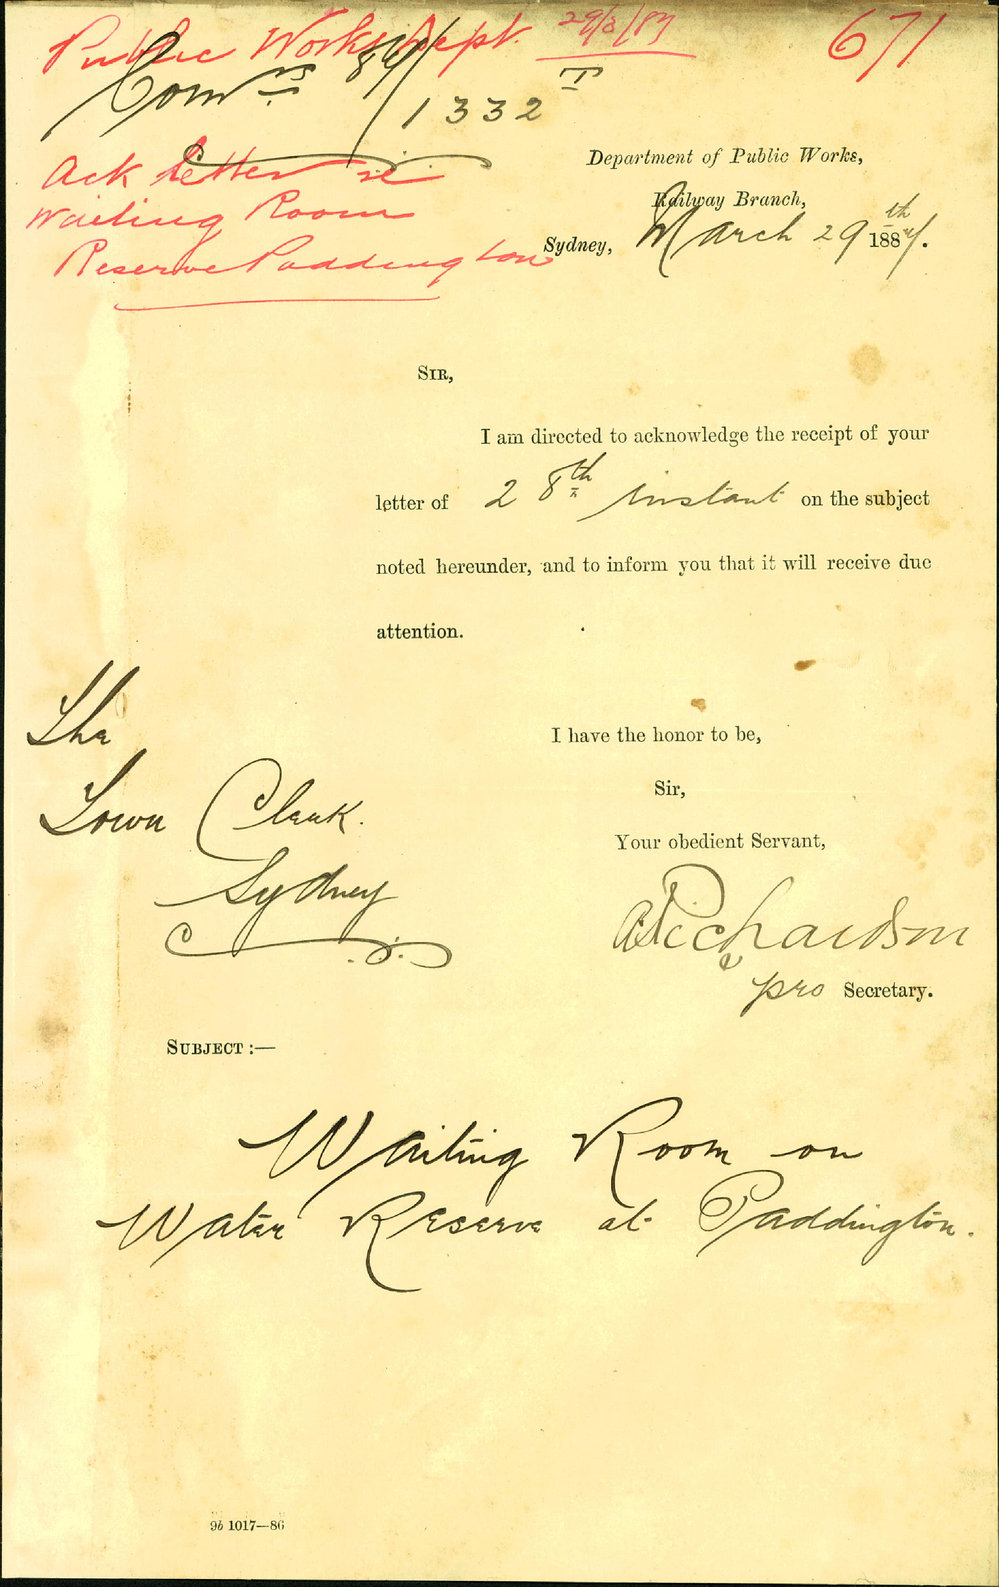 Public Works Dept. 29/3/87
671
Com
1332 T
Ack letter re
Waiting Room
Reserve Paddington
Department of Public Works,
Railway Branch,
Sydney, March 29th 1887.
SIR,
I am directed to acknowledge the receipt of your
letter of 28th instant on the subject
noted hereunder, and to inform you that it will receive due
attention.
The
Town Clerk.
Sydney
I have the honor to be,
Sir,
Your obedient Servant,
Richardson
pro Secretary.
SUBJECT :—
Waiting Room on
Water Reserve at Paddington.
9b 1017—86